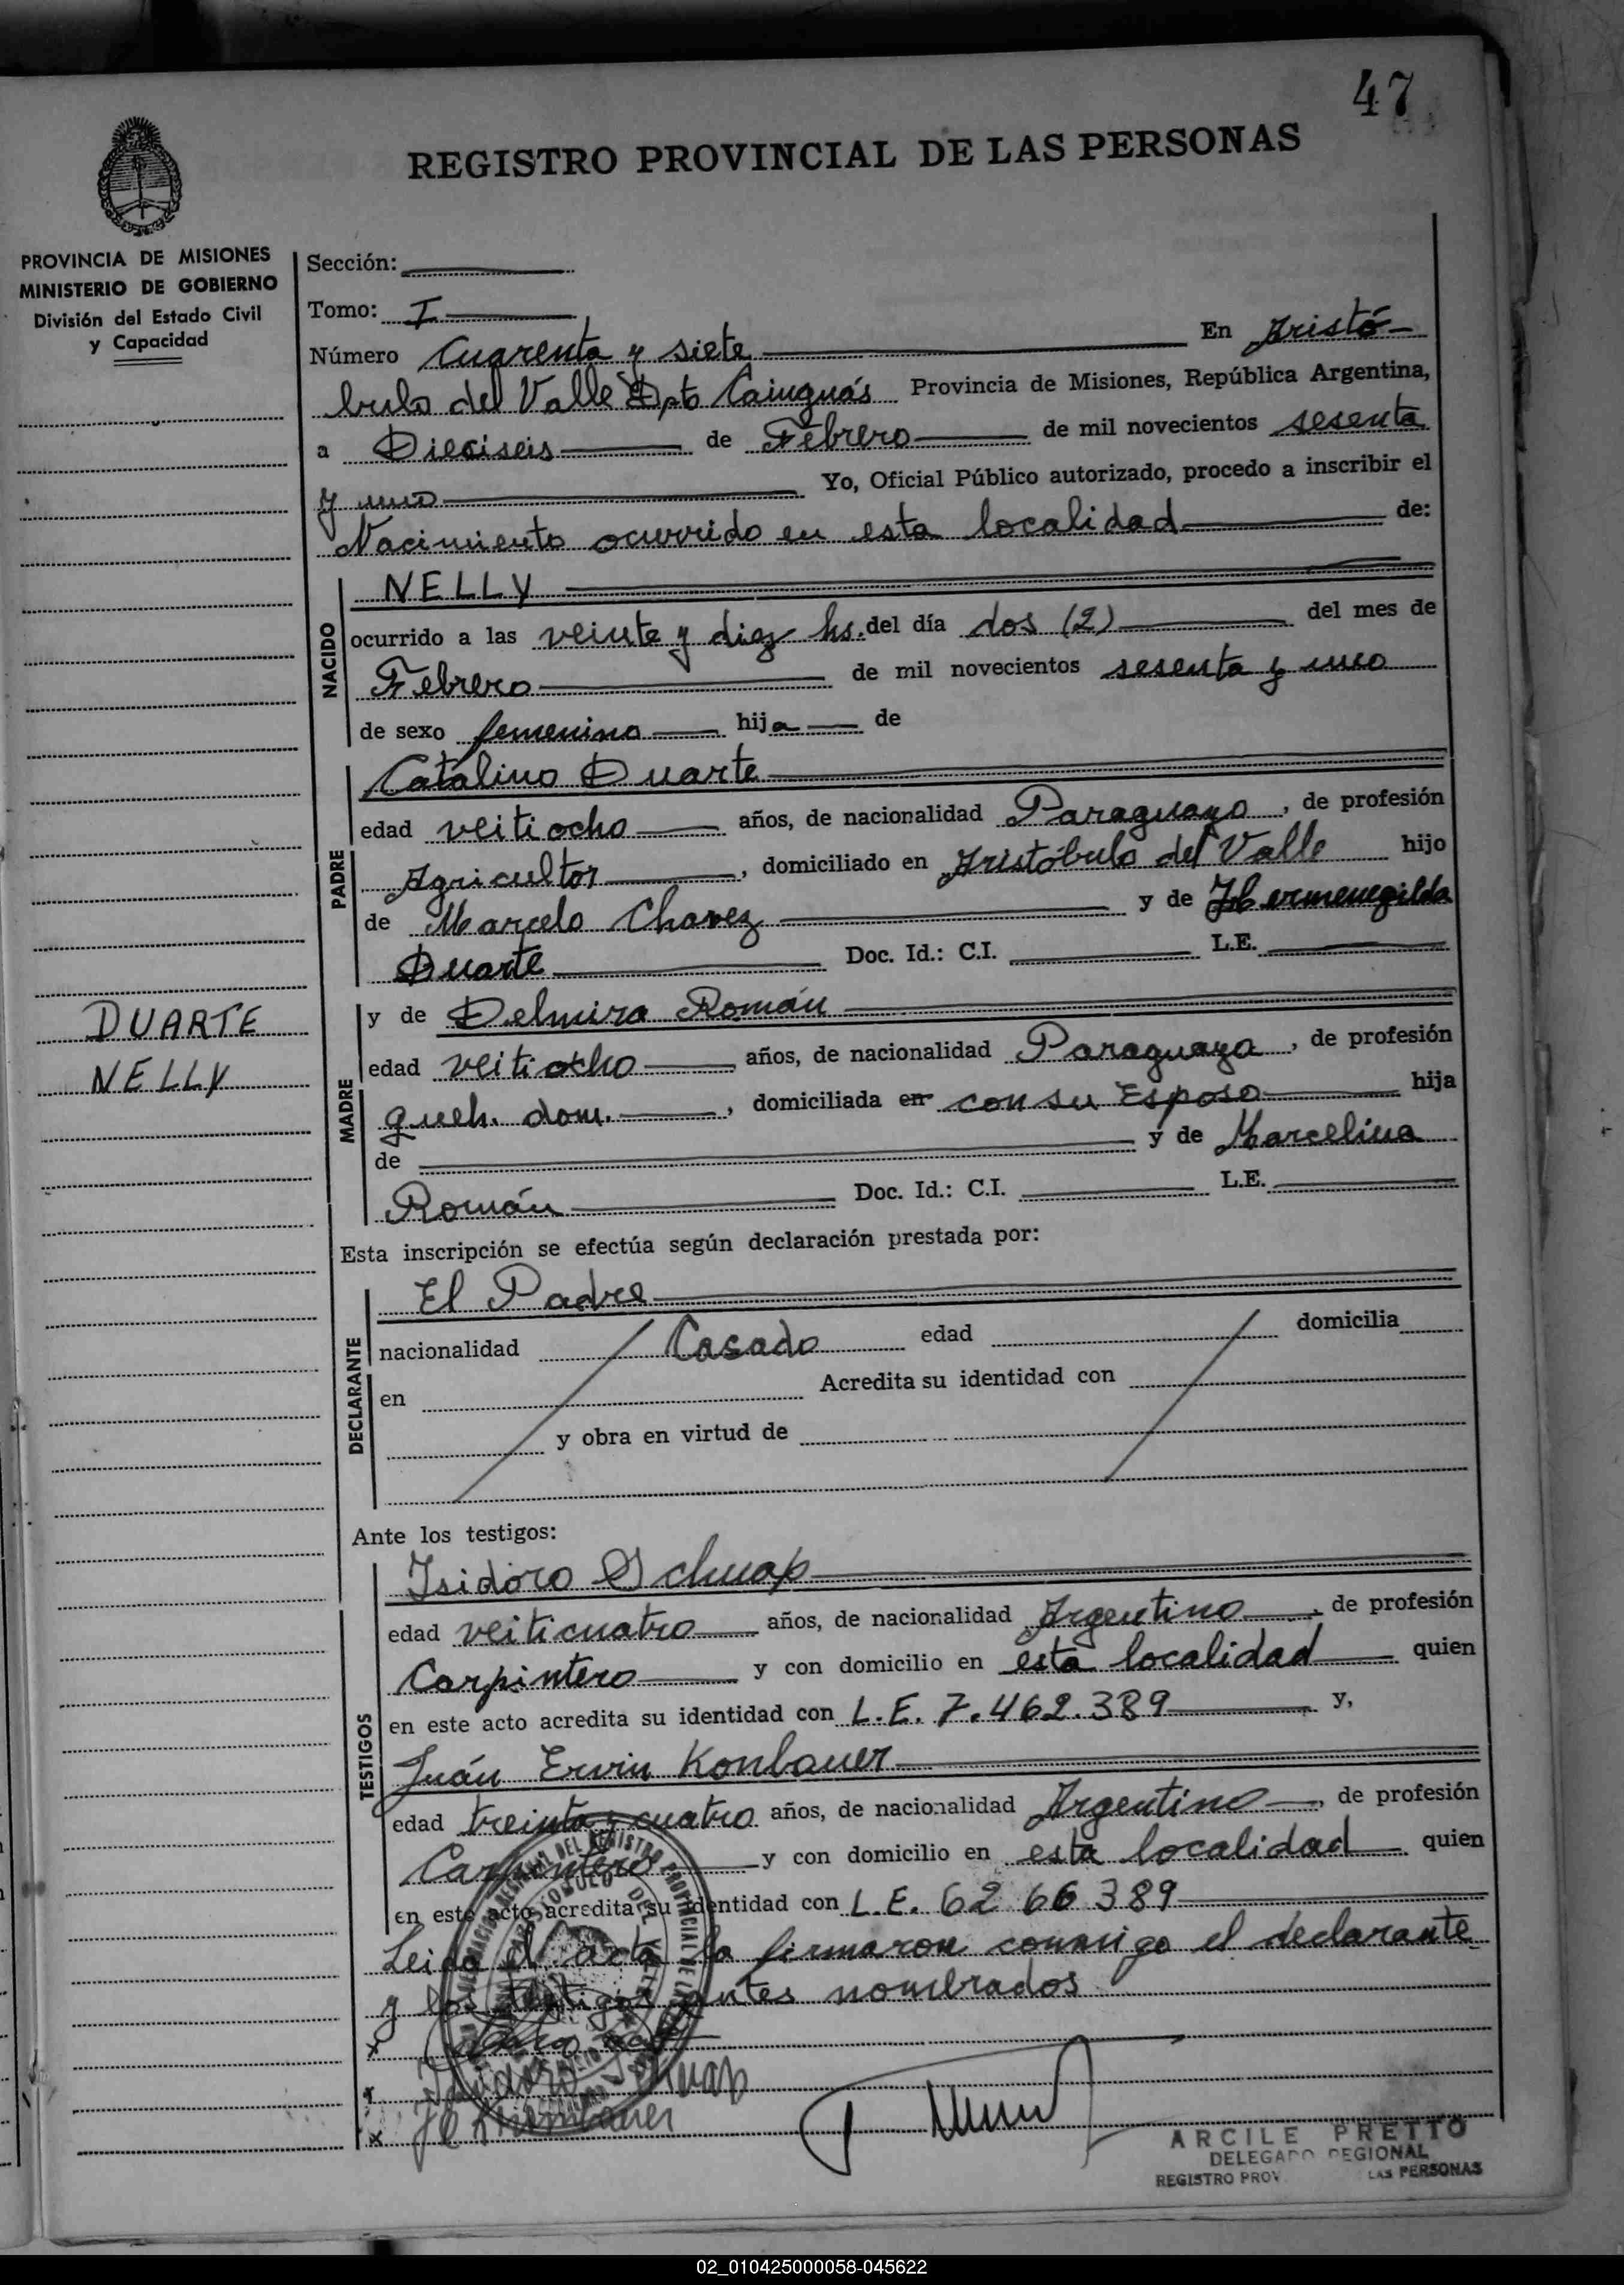 47
REGISTRO PROVINCIAL DE LAS PERSONAS
PROVINCIA DE MISIONES
MINISTERIO DE GOBIERNO
División del Estado Civil
y Capacidad
Sección:
Tomo: I
Número Cuarenta y siete En Aristó-
bulo del Valle Dpto Cainguás Provincia de Misiones, República Argentina,
a Dieciseis de Febrero de mil novecientos sesenta
y uno Yo, Oficial Público autorizado, procedo a inscribir el
Nacimiento ocurrido en esta localidad de:
NACIDO
NELLY
ocurrido a las veinte y diez hs. del día dos (2) del mes de
Febrero de mil novecientos sesenta y uno
de sexo femenino hija de
PADRE
Catalino Duarte
edad veitiocho años, de nacionalidad Paraguayo, de profesión
Agricultor, domiciliado en Aristóbulo del Valle hijo
de Marcelo Chavez y de Hermenegilda
Duarte Doc. Id.: C.I. L.E.
DUARTE
NELLY
MADRE
y de Delmira Román
edad veitiocho años, de nacionalidad Paraguaya, de profesión
queh. dom., domiciliada en con su Esposo hija
de y de Marcelina
Román Doc. Id.: C.I. L.E.
Esta inscripción se efectúa según declaración prestada por:
DECLARANTE
El Padre
nacionalidad Casado edad domicilia
en Acredita su identidad con
y obra en virtud de
Ante los testigos:
TESTIGOS
Isidoro Schuap
edad veiticuatro años, de nacionalidad Argentino, de profesión
Carpintero y con domicilio en esta localidad quien
en este acto acredita su identidad con L.E. 7.462.389 y,
Juán Erwin Konbauer
edad treinta y cuatro años, de nacionalidad Argentino, de profesión
Carpintero y con domicilio en esta localidad quien
en este acto acredita su identidad con L.E. 62 66 389
Leida el acta la firmaron conmigo el declarante
y los testigos antes nombrados
x
x
x
ARCILE PRETTO
DELEGADO REGIONAL
REGISTRO PROV. LAS PERSONAS
02_010425000058-045622